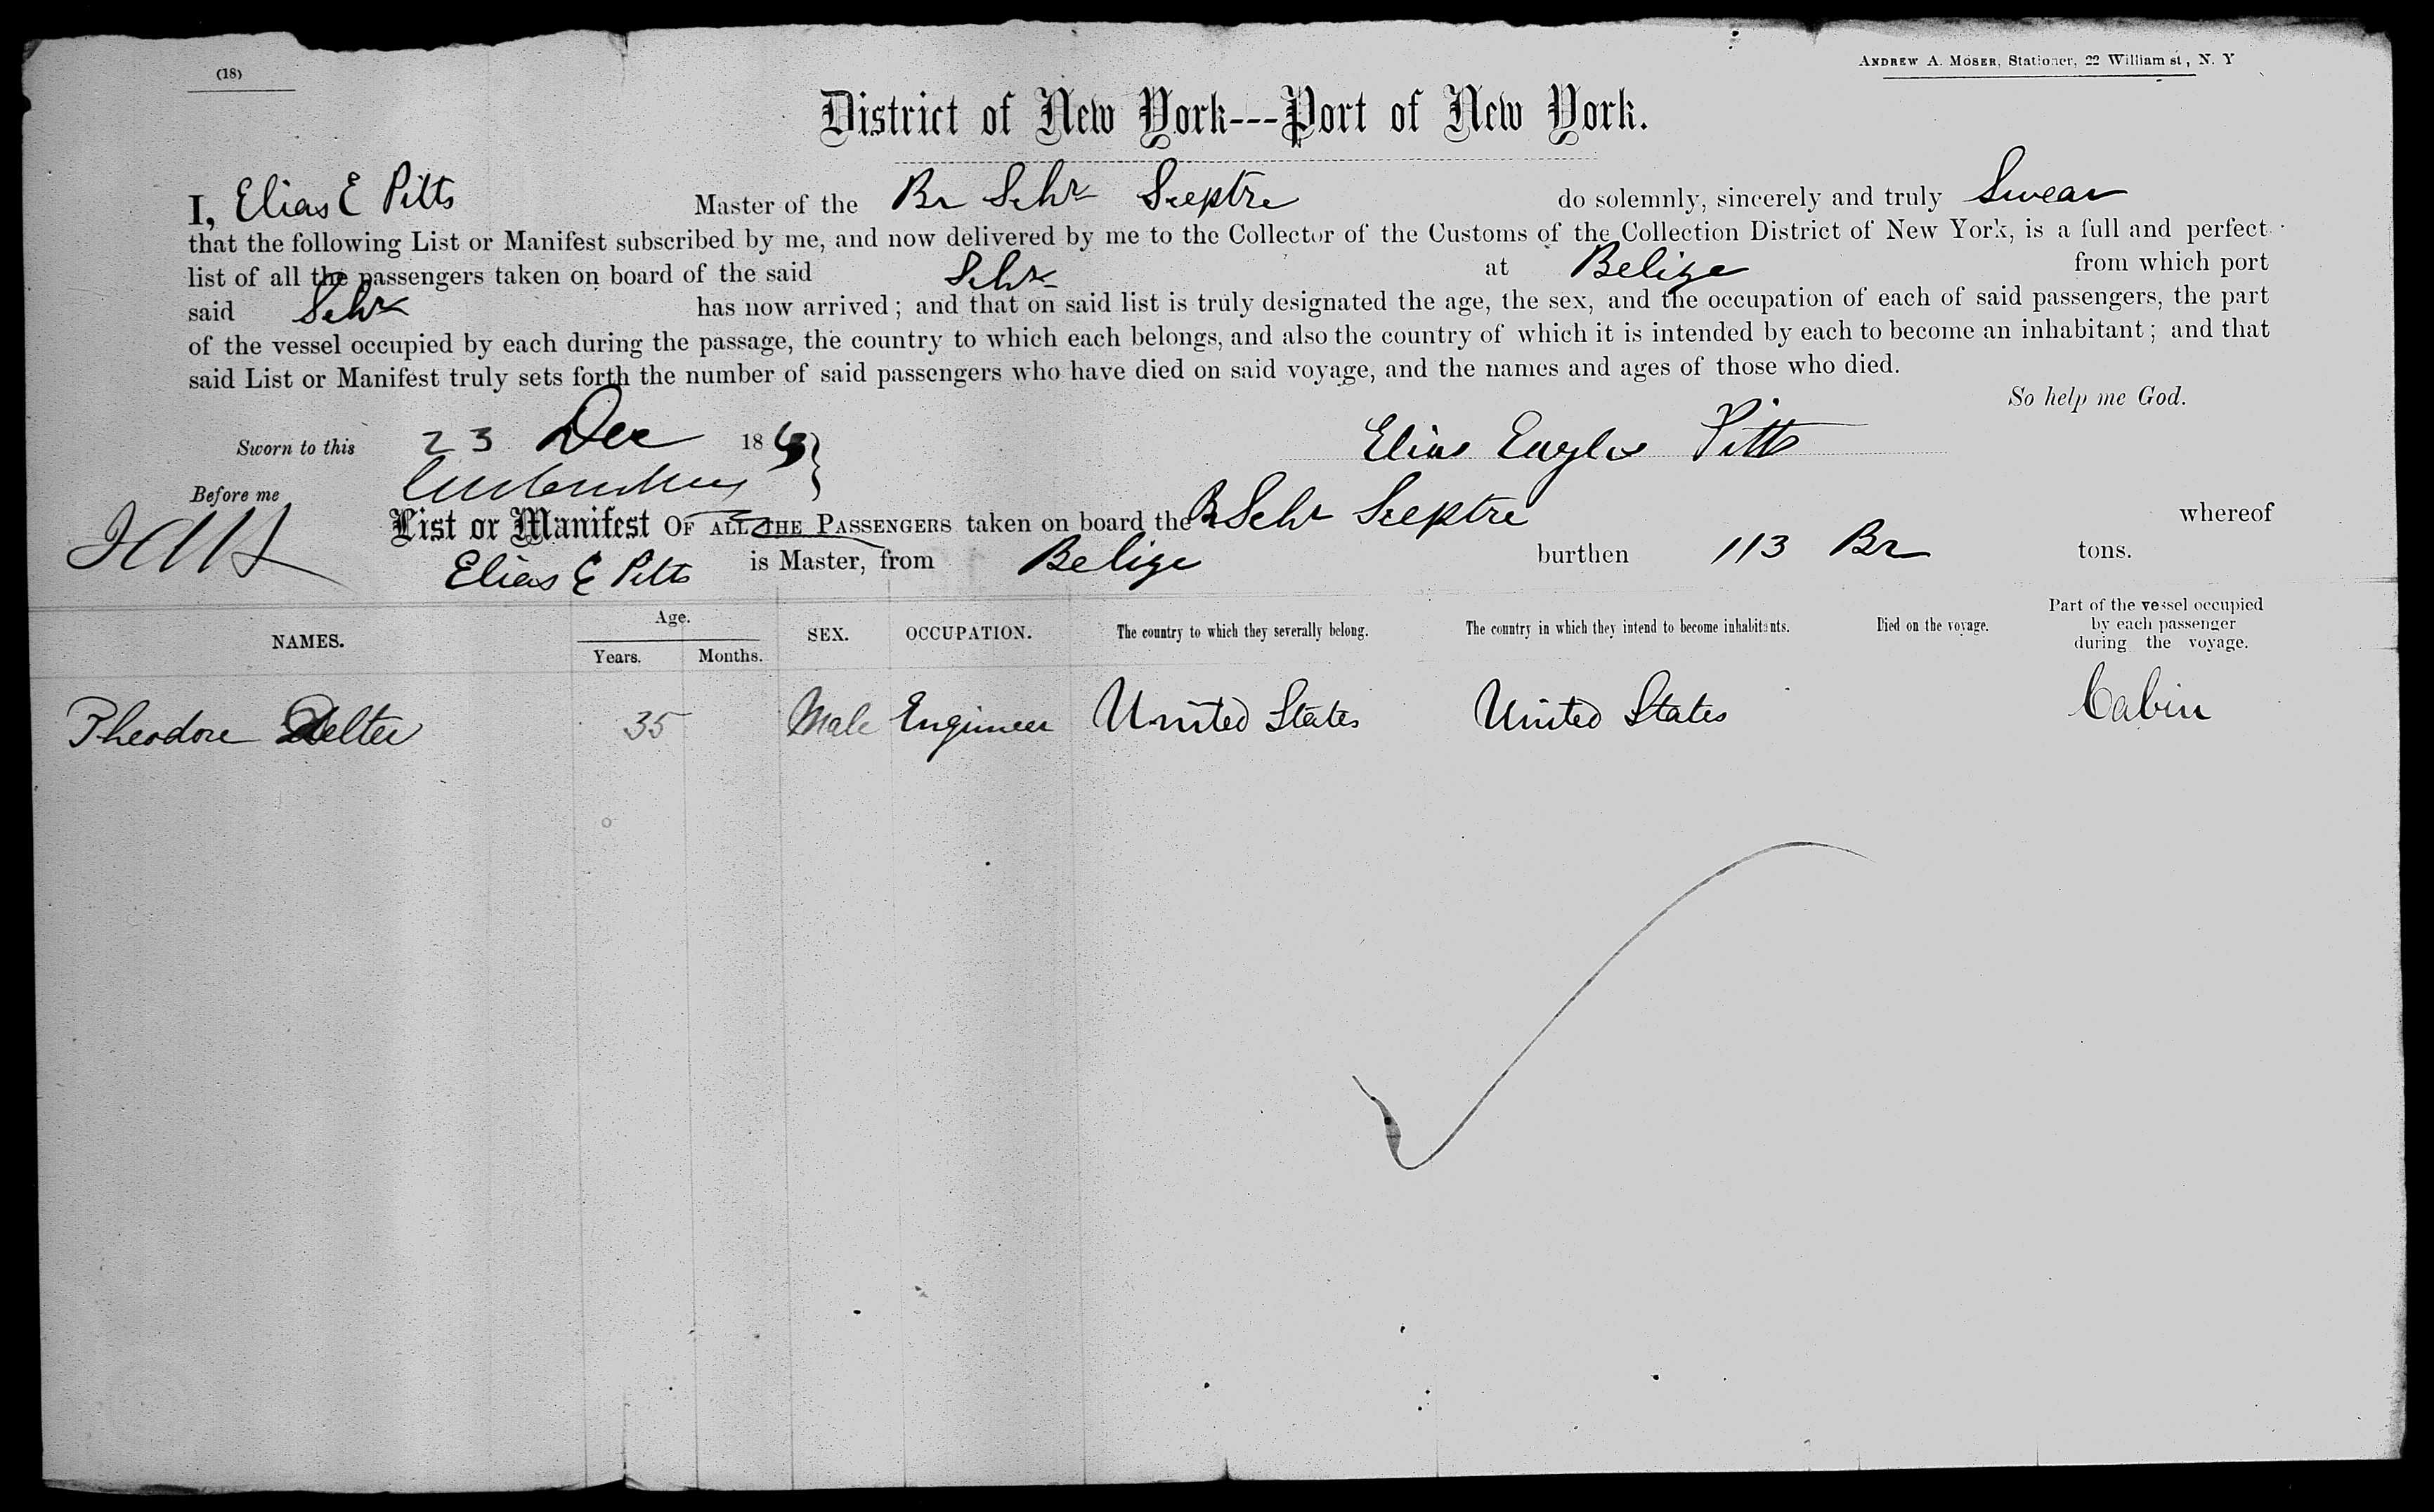 (18)
ANDREW A. MOSER, Stationer, 22 William st, N. Y
District of New York---Port of New York.
I, Elias E Pitts Master of the Br Schr Sceptre do solemnly, sincerely and truly Swear
that the following List or Manifest subscribed by me, and now delivered by me to the Collector of the Customs of the Collection District of New York, is a full and perfect
list of all the passengers taken on board of the said Schr at Belize from which port
said Schr has now arrived; and that on said list is truly designated the age, the sex, and the occupation of each of said passengers, the part
of the vessel occupied by each during the passage, the country to which each belongs, and also the country of which it is intended by each to become an inhabitant; and that
said List or Manifest truly sets forth the number of said passengers who have died on said voyage, and the names and ages of those who died.
So help me God.
Sworn to this 23 Dec 186 Elias Eagles Pitts
Before me
List or Manifest OF ALL THE PASSENGERS taken on board the Br Schr Sceptre whereof
Elias E Pitts is Master, from Belize burthen 113 Br tons.
NAMES. Age. Years. Months. SEX. OCCUPATION. The country to which they severally belong. The country in which they intend to become inhabitants. Died on the voyage. Part of the vessel occupied by each passenger during the voyage.
Theodore 35 Male Engineer United States United States Cabin